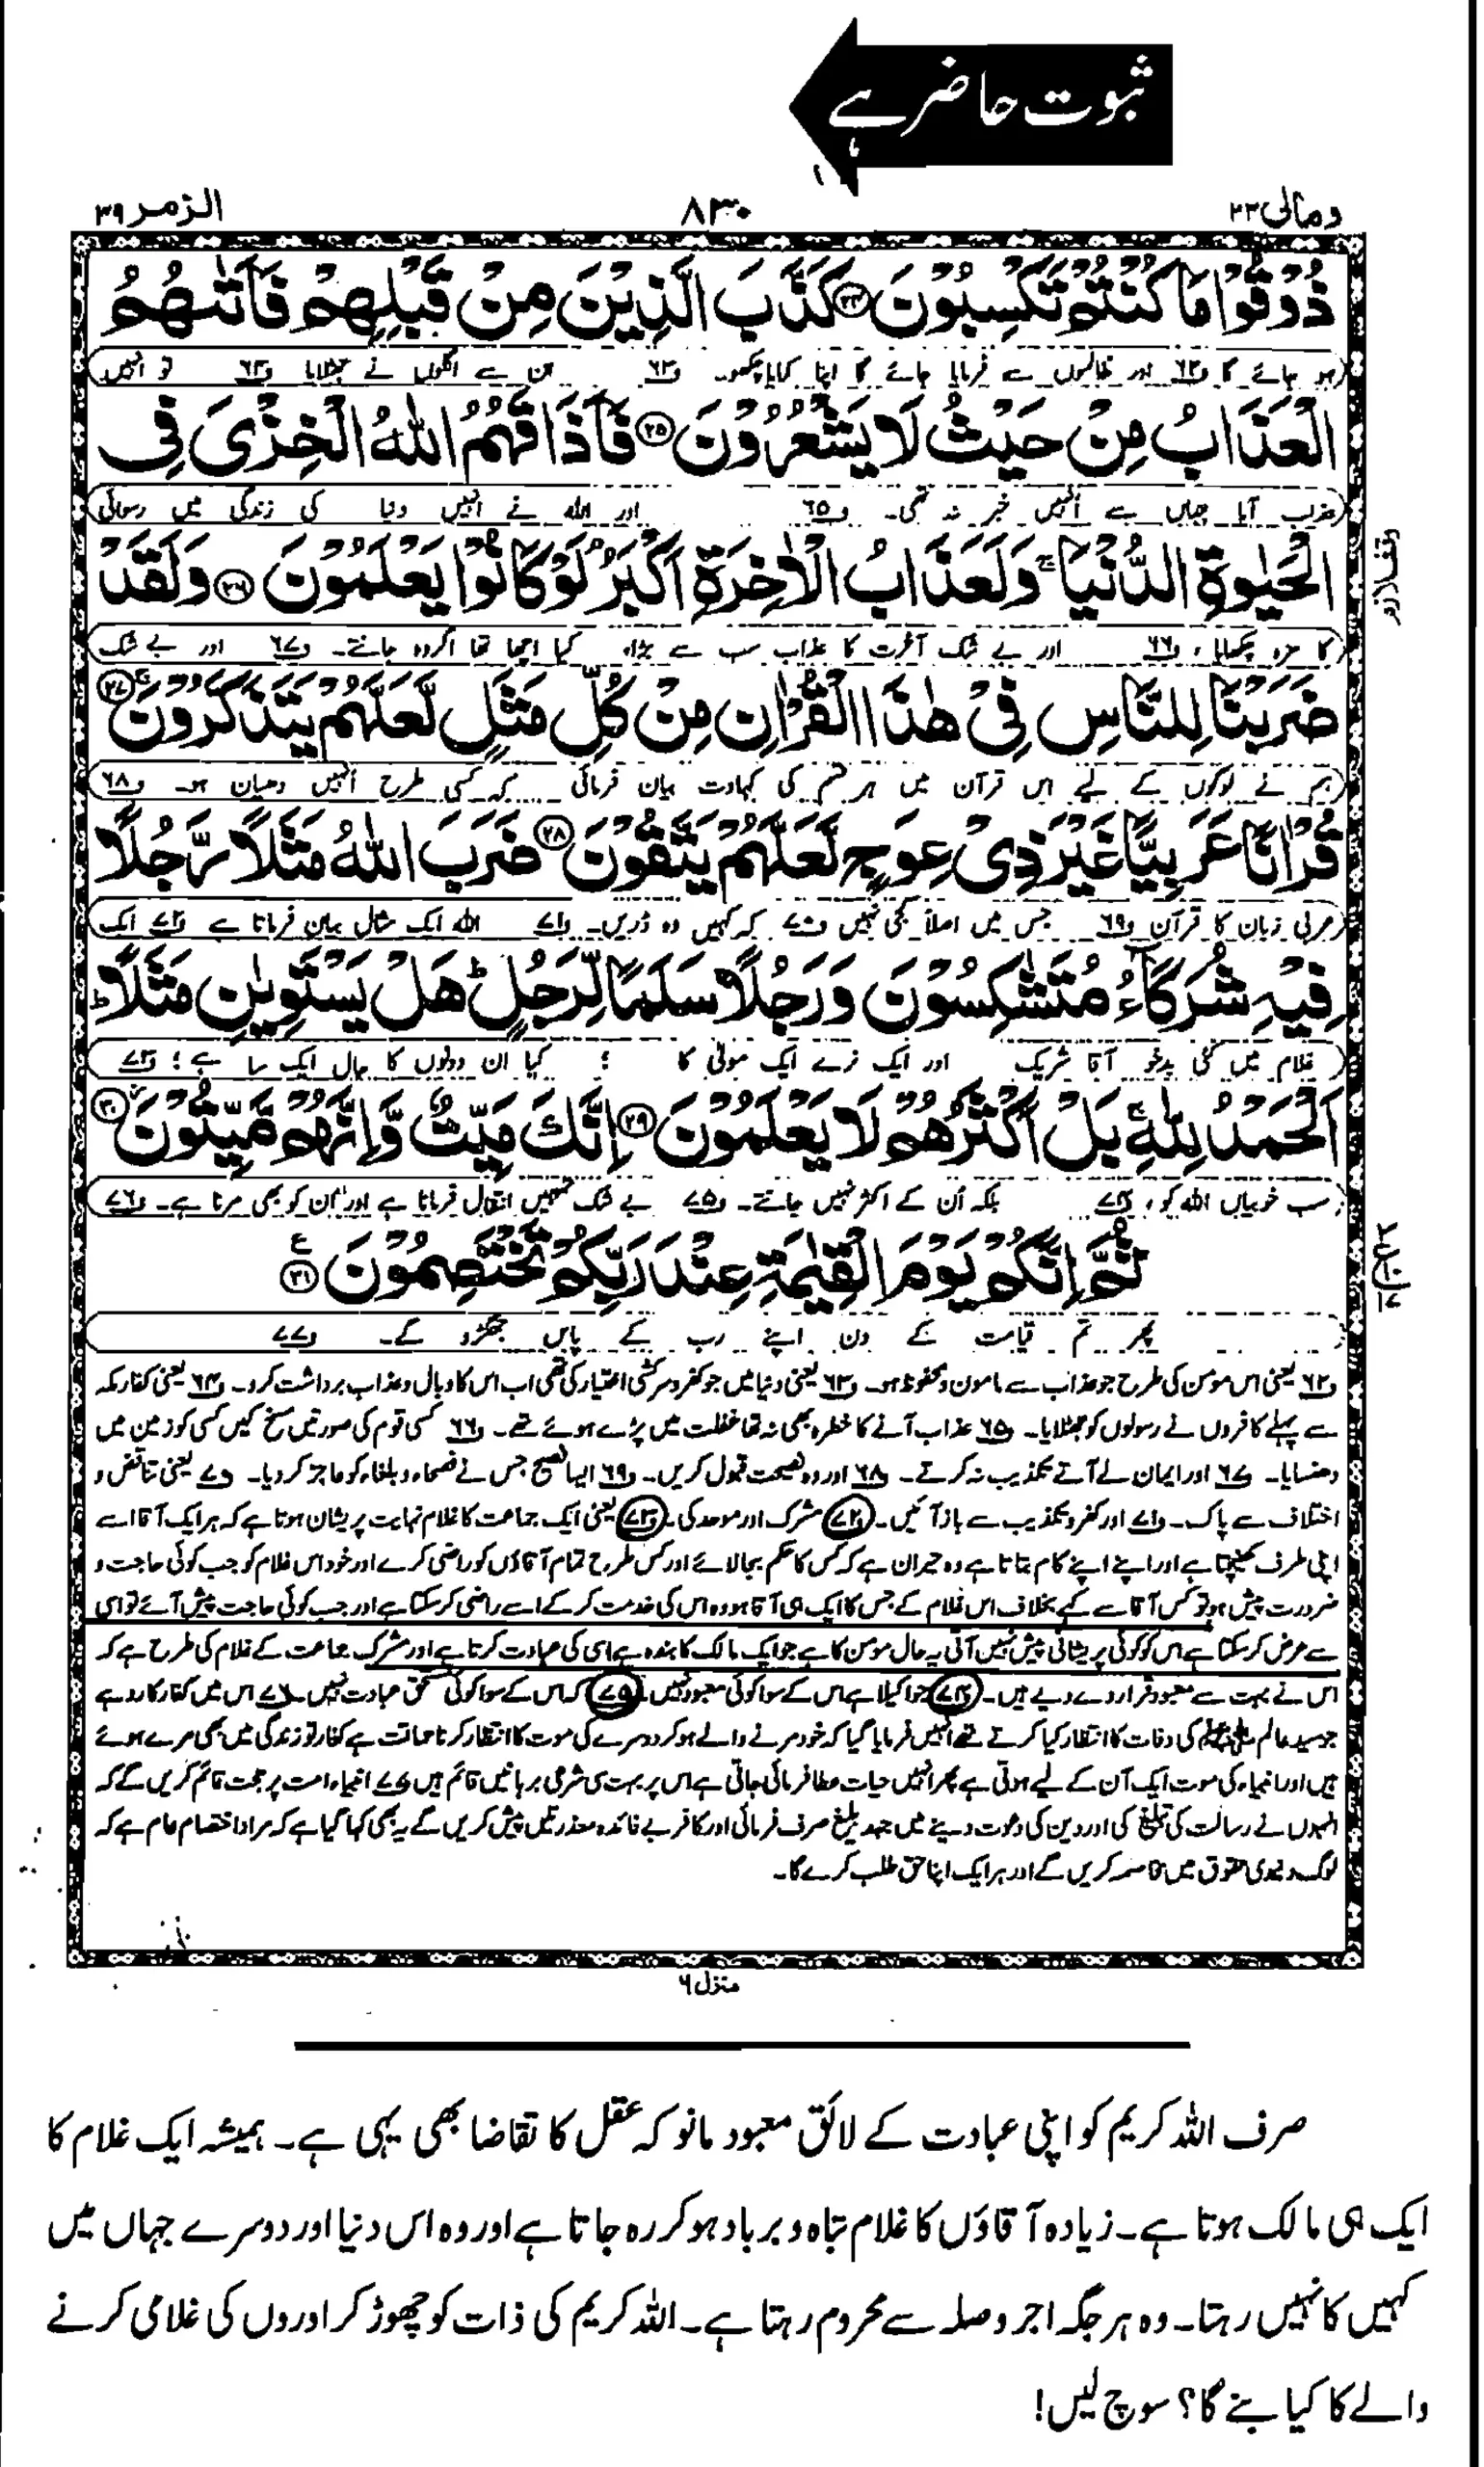 ثبوت حاضر ہے
ومالی ۲۳
۸۳۰
الزمر ۳۹
ذُوْقُوْا مَا كُنْتُمْ تَكْسِبُوْنَ ﴿۲۴﴾ كَذَّبَ الَّذِیْنَ مِنْ قَبْلِهِمْ فَاَتٰىهُمُ
ہو جائے گا ف۶۲ اور ظالموں سے فرمایا جائے گا اپنا کمایا چکھو۔ ف۶۳ ان سے اگلوں نے جھٹلایا ف۶۴ تو انہیں
الْعَذَابُ مِنْ حَیْثُ لَا یَشْعُرُوْنَ ﴿۲۵﴾ فَاَذَاقَهُمُ اللّٰهُ الْخِزْیَ فِی
عذاب آیا جہاں سے انہیں خبر نہ تھی۔ ف۶۵ اور اللہ نے انہیں دنیا کی زندگی میں رسوائی
الْحَیٰوةِ الدُّنْیَا ۚ وَ لَعَذَابُ الْاٰخِرَةِ اَكْبَرُ ۘ لَوْ كَانُوْا یَعْلَمُوْنَ ﴿۲۶﴾ وَ لَقَدْ
وقف لازم
کا مزہ چکھایا، ف۶۶ اور بے شک آخرت کا عذاب سب سے بڑا، کیا اچھا تھا اگر وہ جانتے۔ ف۶۷ اور بے شک
ضَرَبْنَا لِلنَّاسِ فِیْ هٰذَا الْقُرْاٰنِ مِنْ كُلِّ مَثَلٍ لَّعَلَّهُمْ یَتَذَكَّرُوْنَ ﴿۲۷﴾
ہم نے لوگوں کے لیے اس قرآن میں ہر قسم کی کہاوت بیان فرمائی کہ کسی طرح انہیں دھیان ہو۔ ف۶۸
قُرْاٰنًا عَرَبِیًّا غَیْرَ ذِیْ عِوَجٍ لَّعَلَّهُمْ یَتَّقُوْنَ ﴿۲۸﴾ ضَرَبَ اللّٰهُ مَثَلًا رَّجُلًا
عربی زبان کا قرآن ف۶۹ جس میں اصلاً کجی نہیں ف۷۰ کہ کہیں وہ ڈریں۔ ف۷۱ اللہ ایک مثال بیان فرماتا ہے ف۷۲ ایک
فِیْهِ شُرَكَآءُ مُتَشٰكِسُوْنَ وَ رَجُلًا سَلَمًا لِّرَجُلٍ ؕ هَلْ یَسْتَوِیٰنِ مَثَلًا ؕ
غلام میں کئی بدخو آقا شریک اور ایک نرے ایک مولیٰ کا ؛ کیا ان دونوں کا حال ایک سا ہے ؛ ف۷۳
اَلْحَمْدُ لِلّٰهِ ۚ بَلْ اَكْثَرُهُمْ لَا یَعْلَمُوْنَ ﴿۲۹﴾ اِنَّكَ مَیِّتٌ وَّ اِنَّهُمْ مَّیِّتُوْنَ ﴿۳۰﴾
سب خوبیاں اللہ کو، ف۷۴ بلکہ اُن کے اکثر نہیں جانتے۔ ف۷۵ بے شک تمہیں انتقال فرمانا ہے اور ان کو بھی مرنا ہے۔ ف۷۶
ثُمَّ اِنَّكُمْ یَوْمَ الْقِیٰمَةِ عِنْدَ رَبِّكُمْ تَخْتَصِمُوْنَ ﴿۳۱﴾ ع
پھر تم قیامت کے دن اپنے رب کے پاس جھگڑو گے۔ ف۷۷
ف۶۲ یعنی اس مومن کی طرح جو عذاب سے مامون و محفوظ ہو۔ ف۶۳ یعنی دنیا میں جو کفر و سرکشی اختیار کی تھی اب اس کا وبال و عذاب برداشت کرو۔ ف۶۴ یعنی کفار مکہ
سے پہلے کافروں نے رسولوں کو جھٹلایا۔ ف۶۵ عذاب آنے کا خطرہ بھی نہ تھا غفلت میں پڑے ہوئے تھے۔ ف۶۶ کسی قوم کی صورتیں مسخ کیں کسی کو زمین میں
دھنسایا۔ ف۶۷ اور ایمان لے آتے تکذیب نہ کرتے۔ ف۶۸ اور وہ نصیحت قبول کریں۔ ف۶۹ ایسا فصیح جس نے فصحاء و بلغاء کو عاجز کر دیا۔ ف۷۰ یعنی تناقض و
اختلاف سے پاک۔ ف۷۱ اور کفر و تکذیب سے باز آئیں۔ ف۷۲ مشرک اور موحد کی۔ ف۷۳ یعنی ایک جماعت کا غلام نہایت پریشان ہوتا ہے کہ ہر ایک آقا اسے
اپنی طرف کھینچتا ہے اور اپنے اپنے کام بتاتا ہے وہ حیران ہے کہ کس کا حکم بجا لائے اور کس طرح تمام آقاؤں کو راضی کرے اور خود اس غلام کو جب کوئی حاجت و
ضرورت پیش ہو تو کس آقا سے کہے بخلاف اس غلام کے جس کا ایک ہی آقا ہو وہ اس کی خدمت کر کے اسے راضی کر سکتا ہے اور جب کوئی حاجت پیش آئے تو اسی
سے عرض کر سکتا ہے اس کو کوئی پریشانی پیش نہیں آتی یہ حال مومن کا ہے جو ایک مالک کا بندہ ہے اسی کی عبادت کرتا ہے اور مشرک جماعت کے غلام کی طرح ہے کہ
اس نے بہت سے معبود قرار دے دیے ہیں۔ ف۷۴ جو اکیلا ہے اس کے سوا کوئی معبود نہیں۔ ف۷۵ کہ اس کے سوا کوئی مستحق عبادت نہیں۔ ف۷۶ اس میں کفار کا رد ہے
جو سید عالم صلی اللہ علیہ وسلم کی وفات کا انتظار کیا کرتے تھے انہیں فرمایا گیا کہ خود مرنے والے ہو کر دوسرے کی موت کا انتظار کرنا حماقت ہے کفار تو زندگی میں بھی مرے ہوئے
ہیں اور انبیاء کی موت ایک آن کے لیے ہوتی ہے پھر انہیں حیات عطا فرمائی جاتی ہے اس پر بہت سی شرعی برہانیں قائم ہیں ف۷۷ انبیاء امت پر حجت قائم کریں گے کہ
انہوں نے رسالت کی تبلیغ کی اور دین کی دعوت دینے میں جہد بلیغ صرف فرمائی اور کافر بے فائدہ معذرتیں پیش کریں گے یہ بھی کہا گیا ہے کہ مراد اختصام عام ہے کہ
لوگ دنیوی حقوق میں مخاصمہ کریں گے اور ہر ایک اپنا حق طلب کرے گا۔
منزل ۶
صرف اللہ کریم کو اپنی عبادت کے لائق معبود مانو کہ عقل کا تقاضا بھی یہی ہے۔ ہمیشہ ایک غلام کا
ایک ہی مالک ہوتا ہے۔ زیادہ آقاؤں کا غلام تباہ و برباد ہو کر رہ جاتا ہے اور وہ اس دنیا اور دوسرے جہاں میں
کہیں کا نہیں رہتا۔ وہ ہر جگہ اجر و صلہ سے محروم رہتا ہے۔ اللہ کریم کی ذات کو چھوڑ کر اوروں کی غلامی کرنے
والے کا کیا بنے گا؟ سوچ لیں!